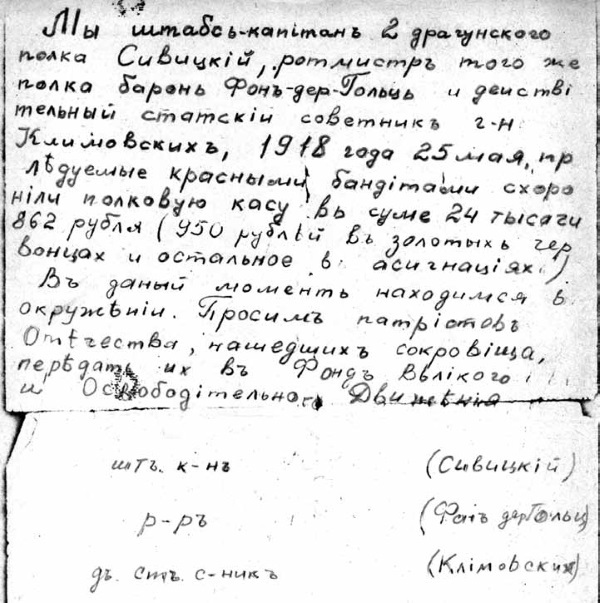 Мы штабсъ-капітанъ 2 драгунского
полка Сивицкій, ротмистръ того же
полка баронъ Фонъ-дер-Гольцъ и действі
тельный статскій советникъ г-н
Климовскихъ, 1918 года 25 мая, пр
лѣдуемые красными бандітами схоро
ніли полковую касу въ суме 24 тысячи
862 рубля (950 рублѣй въ золотыхъ чер
вонцах и остальное в асигнаціях)
Въ даный моментъ находимся в
окружѣніи. Просимъ патріотовъ
Отѣчества, нашедшихъ сокровіща,
перѣдать их въ Фондъ Вѣлікого
и Освободітельного Движѣнія
штъ. к-нъ (Сивицкій)
р-ръ (Фонъ дер Гольц)
дъ. стъ. с-никъ (Клімовских)